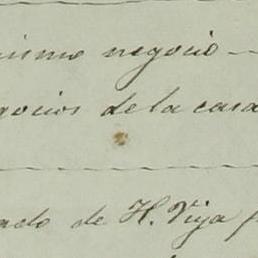 mismo negocio —
gocios de la casa
ado de H. Vija